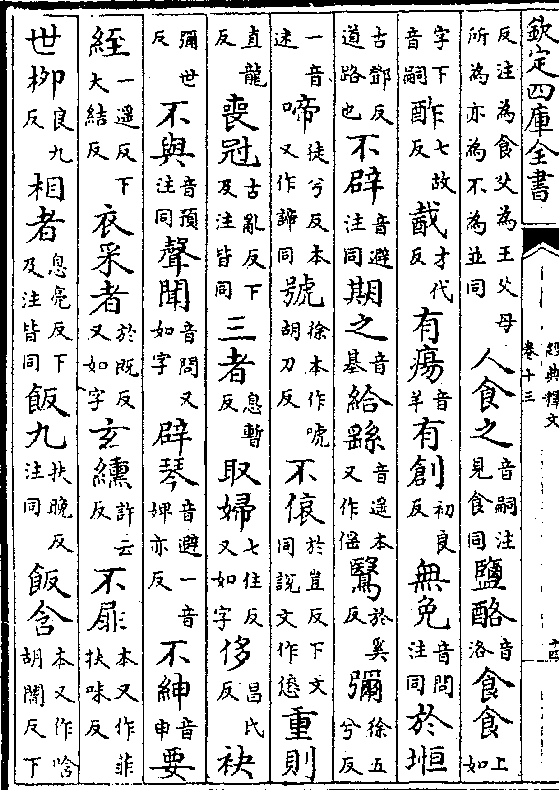 欽定四庫全書
經典釋文
卷十三
十四
反注為食父為王父母所為亦為不為並同人食之音嗣注見食同鹽酪音洛食食上如
字下音嗣酢七故反酨才代反有瘍音羊有創初良反無免音問注同於垣
古鄧反道路也不辟音避注同期之音基給繇音遥本又作傜鷖於奚反彌徐五兮反
一音迷啼徒兮反本又作諦同號徐本作唬胡刀反不偯於豈反下文同説文作㥋重則
直龍反喪冠古亂反下及注皆同三者息暫反取婦七住反又如字侈昌氏反袂
彌世反不與音預注同聲聞音問又如字辟琴音避一音婢亦反不紳音申要
絰一遥反下大結反衣采者於既反又如字玄纁許云反不屝本又作菲扶味反
世柳良九反相者息亮反下及注皆同飯九扶晚反注同飯含本又作唅胡闇反下